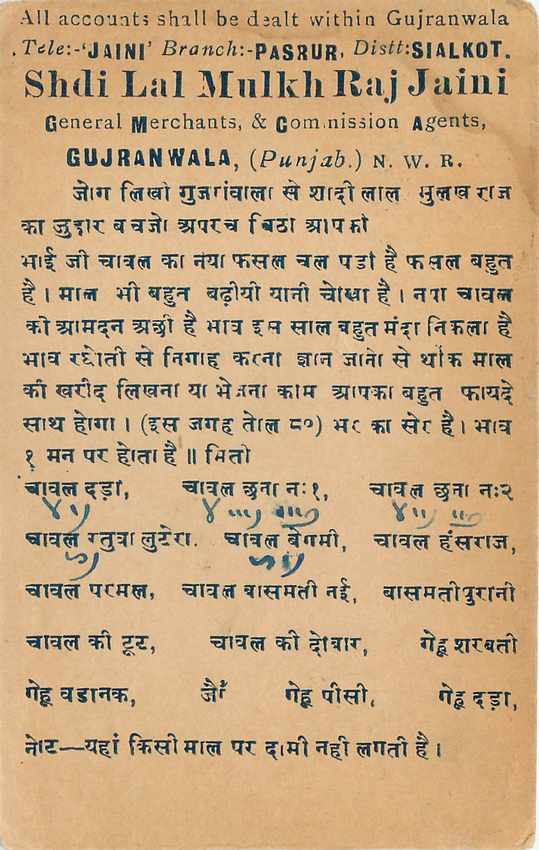 All accounts shall be dealt within Gujranwala
Tele:-'JAINI' Branch:-PASRUR, Distt:SIALKOT.
Shdi Lal Mulkh Raj Jaini
General Merchants, & Commission Agents,
GUJRANWALA, (Punjab.) N. W. R.
जोग लिखी गुजरांवाला से शादी लाल मुलख राज
का जुहार बचजो अपरच चिठा आपको
भाई जी चावल का नया फसल चल पडी है फसल बहुत
है। माल भी बहुत बढ़ीयी यानी चोखा है। नया चावल
की आमदन अछी है भाव इस साल बहुत मंदा निकला है
भाव रघोती से निगाह करना ज्ञान जानो से थोक माल
की खरीद लिखना या भेजना काम आपका बहुत फायदे
साथ होगा। (इस जगह तोल ८०) भर का सेर है। भाव
१ मन पर होता है॥ मिती
चावल दड़ा, चावल छना नः१, चावल छना नः२
चावल लुटेरा. चावल बेगमी, चावल हंसराज,
चावल परमल, चावल बासमती नई, बासमती पुरानी
चावल की टूट, चावल की दोबार, गेहू शरबती
गेहू वडानक, जौं गेहू पीसी, गेहू दड़ा,
नोट—यहां किसी माल पर दामी नही लगती है।